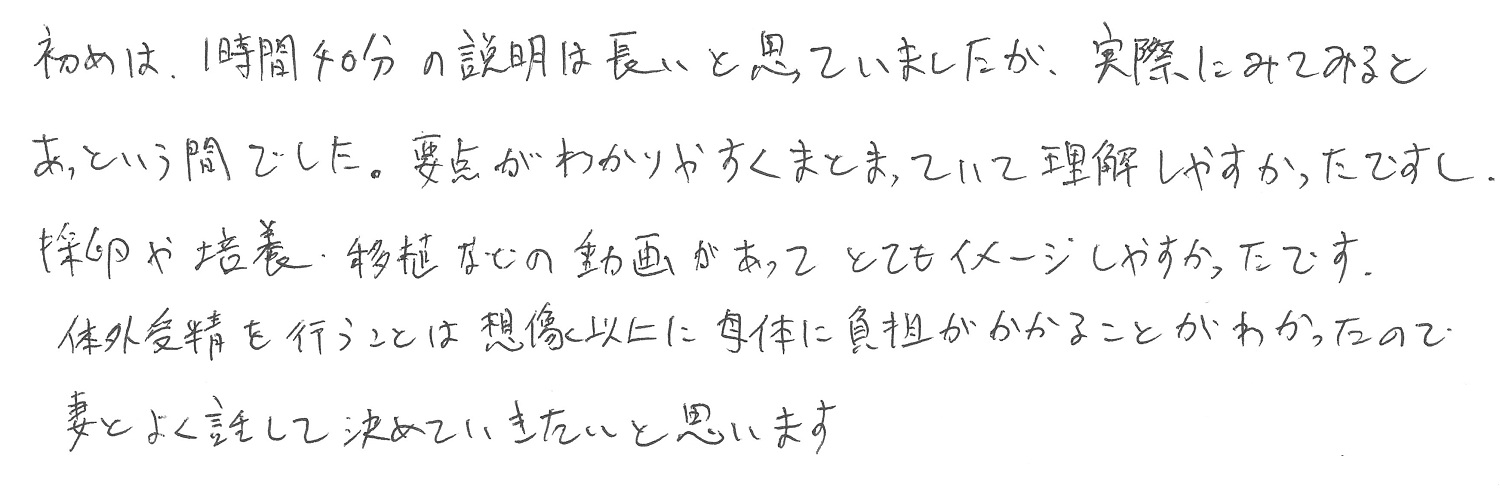 初めは、1時間40分の説明は長いと思っていましたが、実際にみてみると
あっという間でした。要点がわかりやすくまとまっていて理解しやすかったですし、
採卵や培養・移植などの動画があってとてもイメージしやすかったです。
体外受精を行うことは想像以上に母体に負担がかかることがわかったので
妻とよく話して決めていきたいと思います